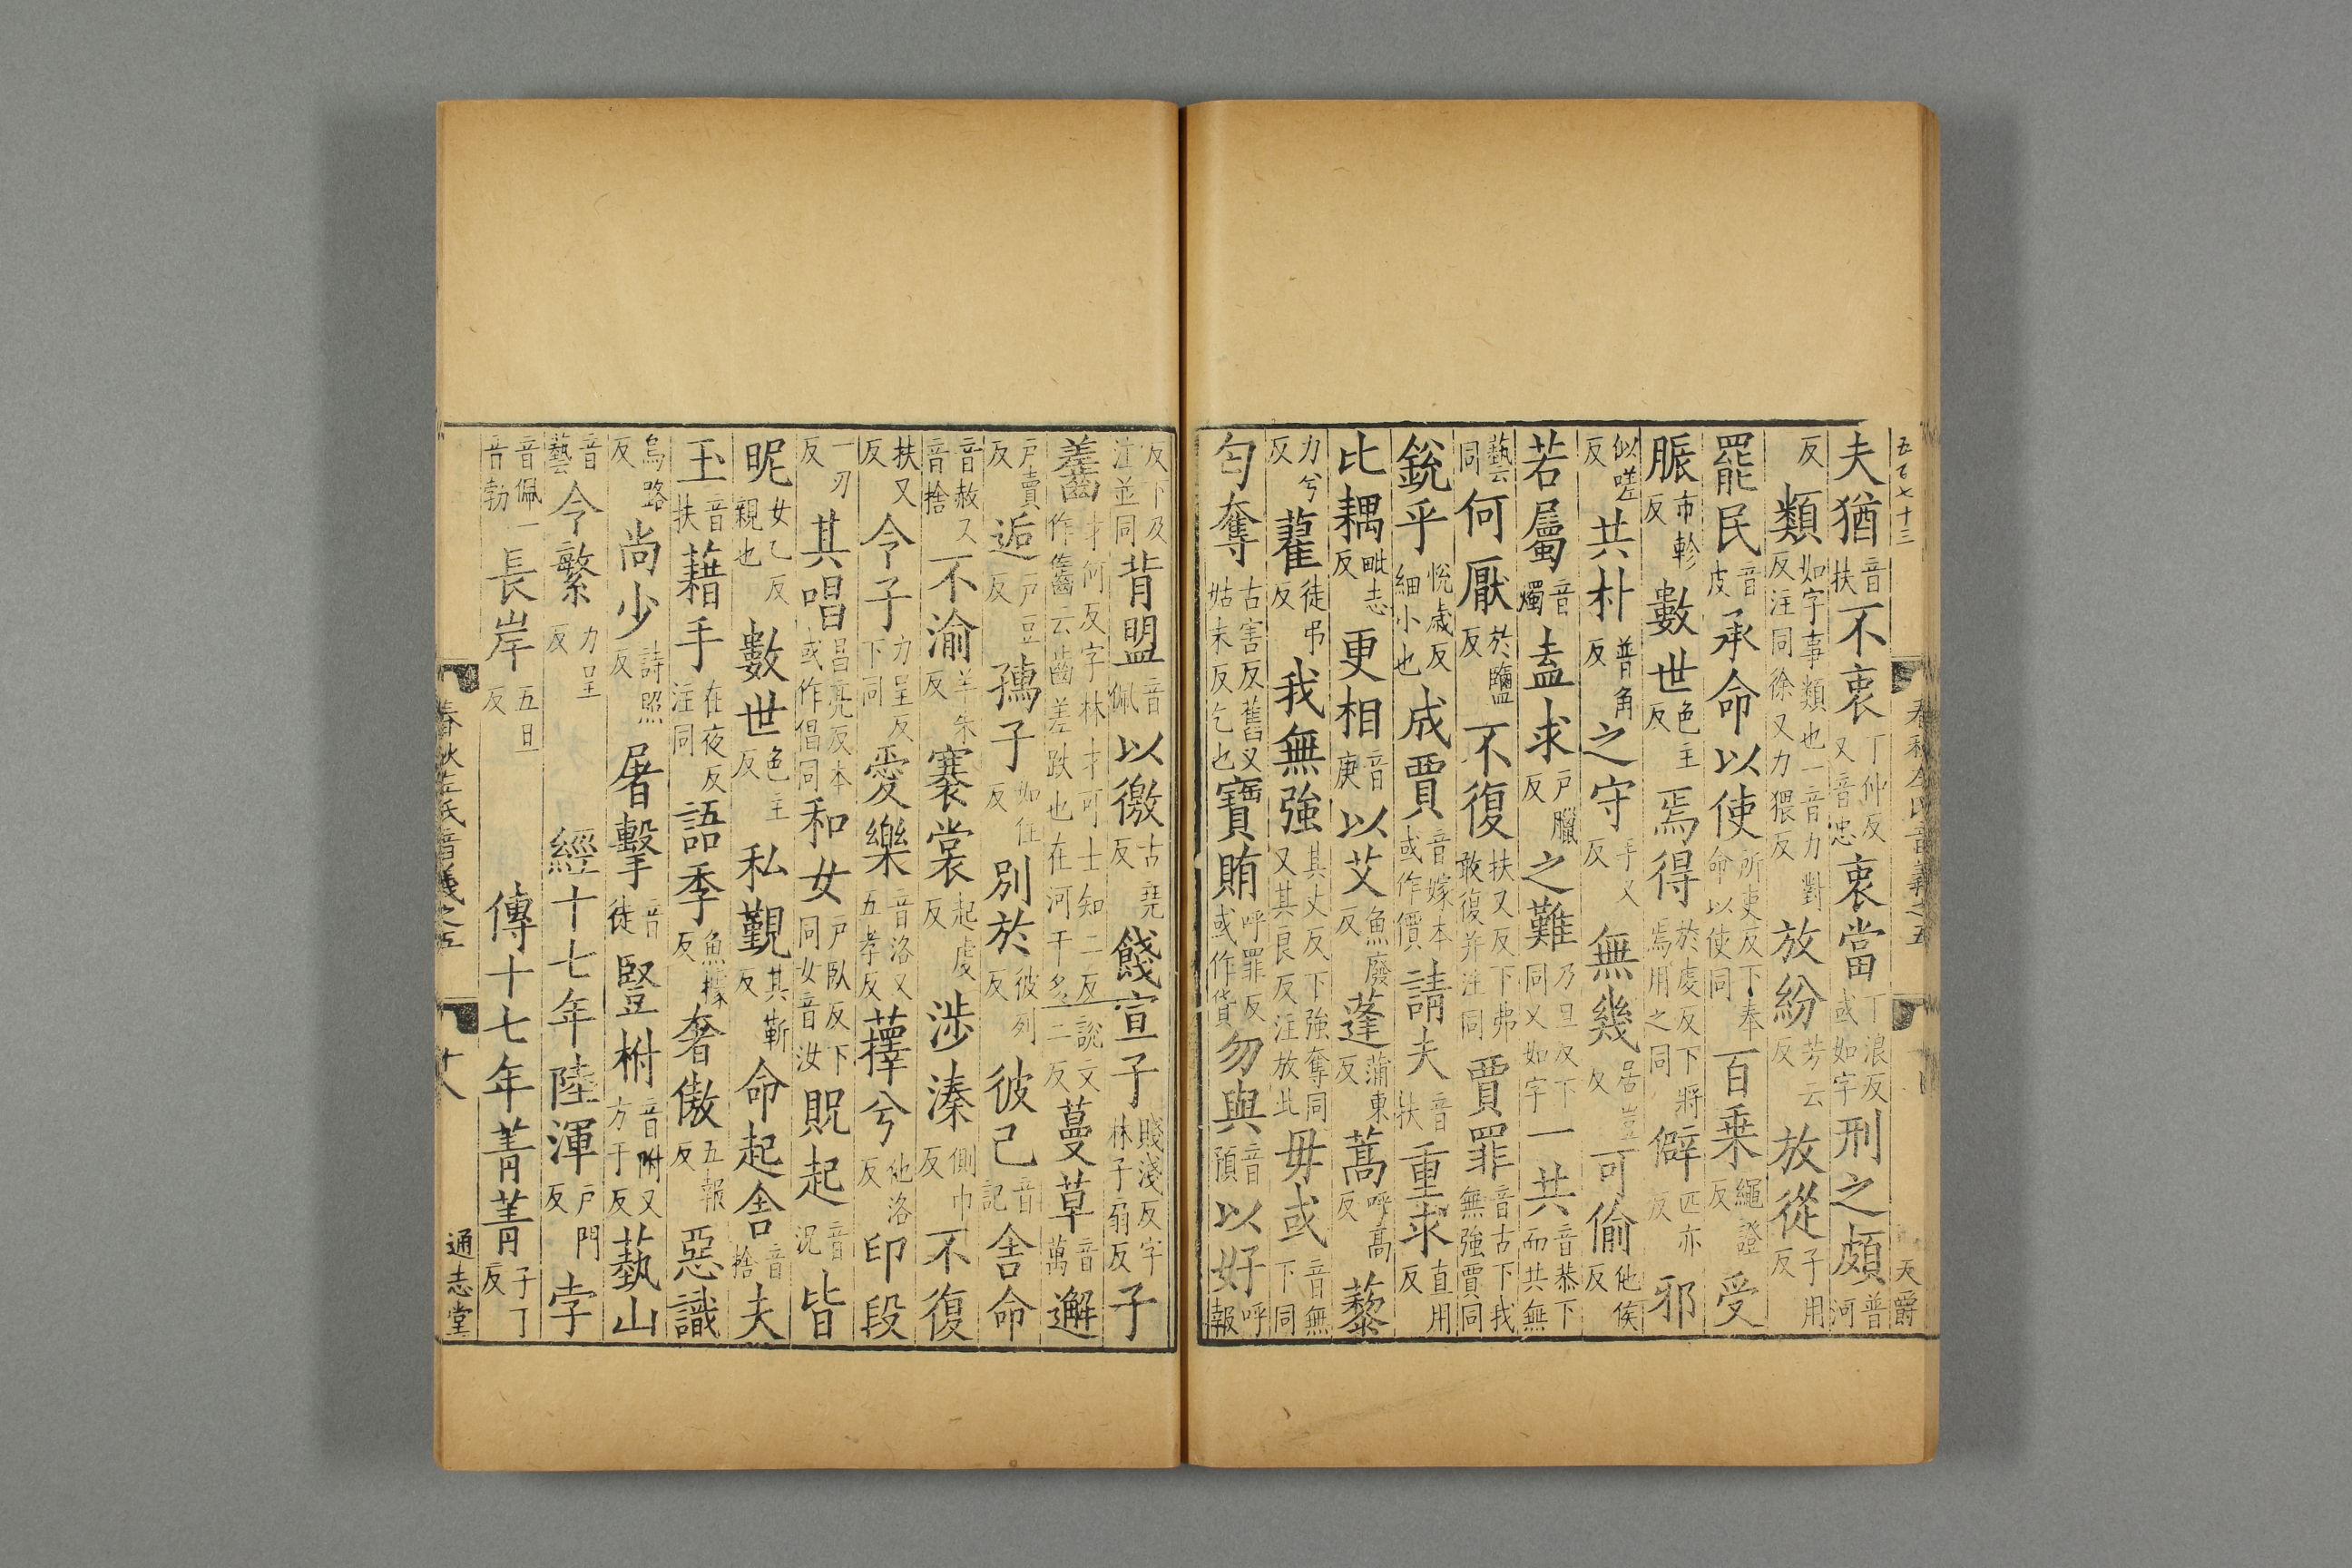 五百七十三 春秋左氏音義之五 天爵
夫猶音扶不衷丁仲反又音忠衷當丁浪反或如字刑之頗普河
反類如字事類也一音力對反注同徐又力猥反放紛芳云反放從子用反
罷民音皮承命以使所吏反下奉命以使同百乗繩證反受
脤市軫反數世色主反焉得於虔反下將焉用之同僻匹亦反邪
似嗟反共朴普角反之守手又反無幾居豈反可偷他侯反
若屬音燭盍求戶臘反之難乃旦反下同又如字一共音恭下而共無
藝同何厭於鹽反不復扶又反下弗敢復并注同賈罪音古下我無強賈同
銳乎悅歲反細小也成賈音嫁本或作價請夫音扶重求直用反
比耦毗志反更相音庚以艾魚廢反蓬蒲東反蒿呼高反藜
力兮反藋徒弔反我無強其丈反下強奪同又其良反注放此毋或音無下同
匄奪古害反舊又姑末反乞也寶賄呼罪反或作貨勿與音預以好呼報
反下及注並同背盟音佩以徼古堯反餞宣子賤淺反字林子扇反子
齹才何反字林才可士知二反說文作𪙉云齒差跌也在河千多二反蔓草音萬邂
戶賣反逅戶豆反孺子如住反別於彼列反彼己音記舍命
音赦又音捨不渝羊朱反褰裳起虔反涉溱側巾反不復
扶又反令子力呈反下同愛樂音洛又五孝反蘀兮他洛反印段
一刃反其唱昌亮反本或作倡同和女戶臥反下同女音汝貺起音況皆
昵女乙反親也數世色主反私覲其靳反命起舍音捨夫
玉音扶藉手在夜反注同語季魚據反奢傲五報反惡識
烏路反尚少詩照反屠擊音徒豎柎音附又方于反藝山
音藝令繁力呈反經十七年陸渾戶門反孛
音佩一音勃長岸五旦反傳十七年菁菁子丁反
春秋左氏音義之五 十八 通志堂